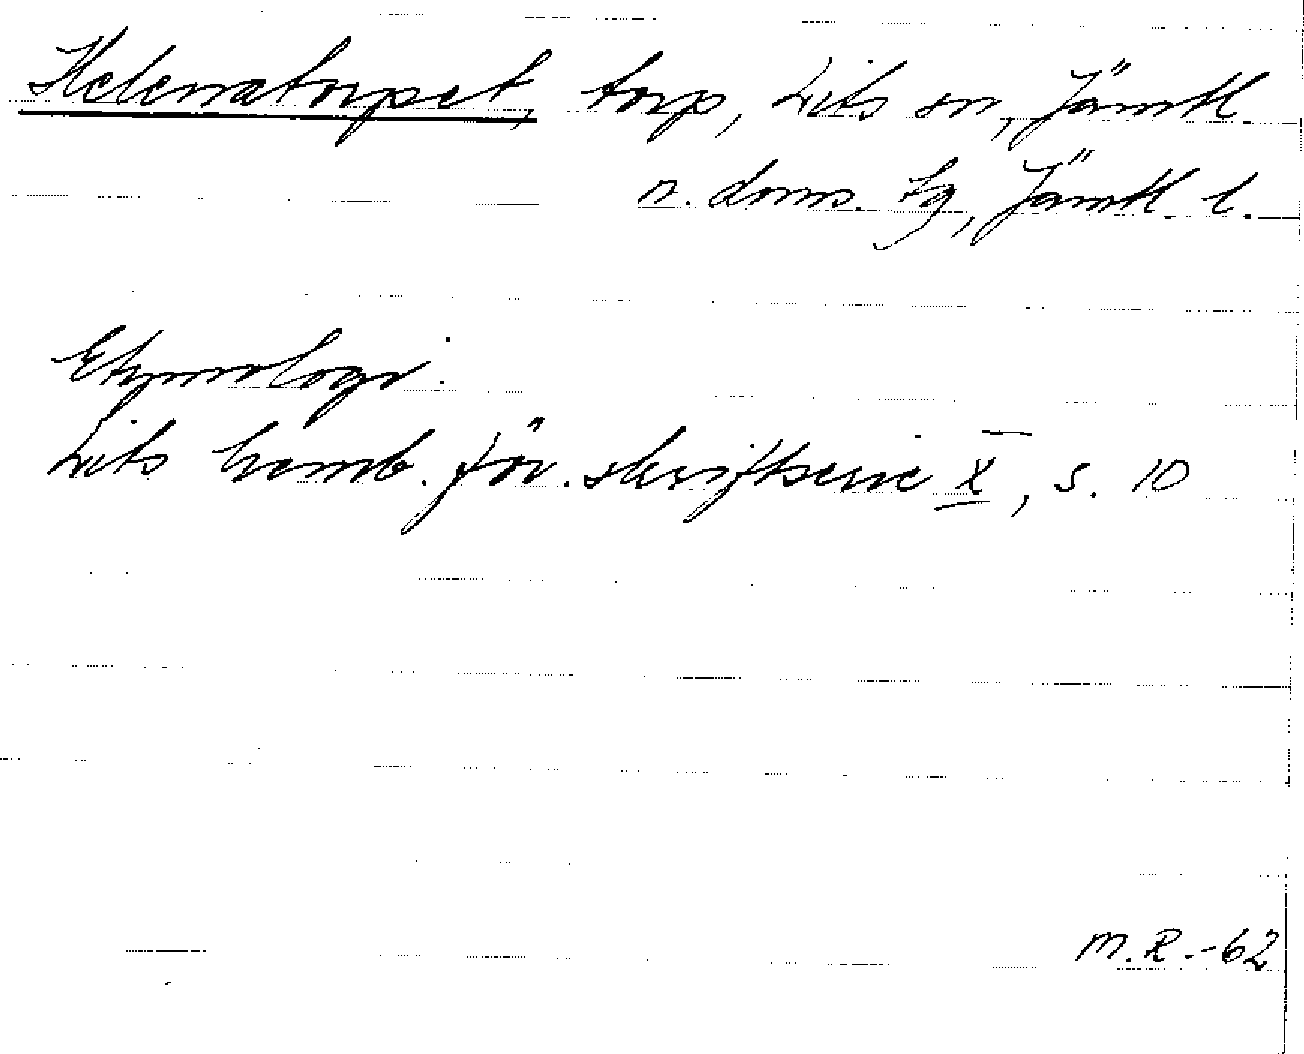 Helenatorpet, torp, Lits sn, Jämtl.
n. doms. tg, Jämtl. l.
Etymologi:
Lits hemb. för. skriftserie X, s. 10
M.R.-62